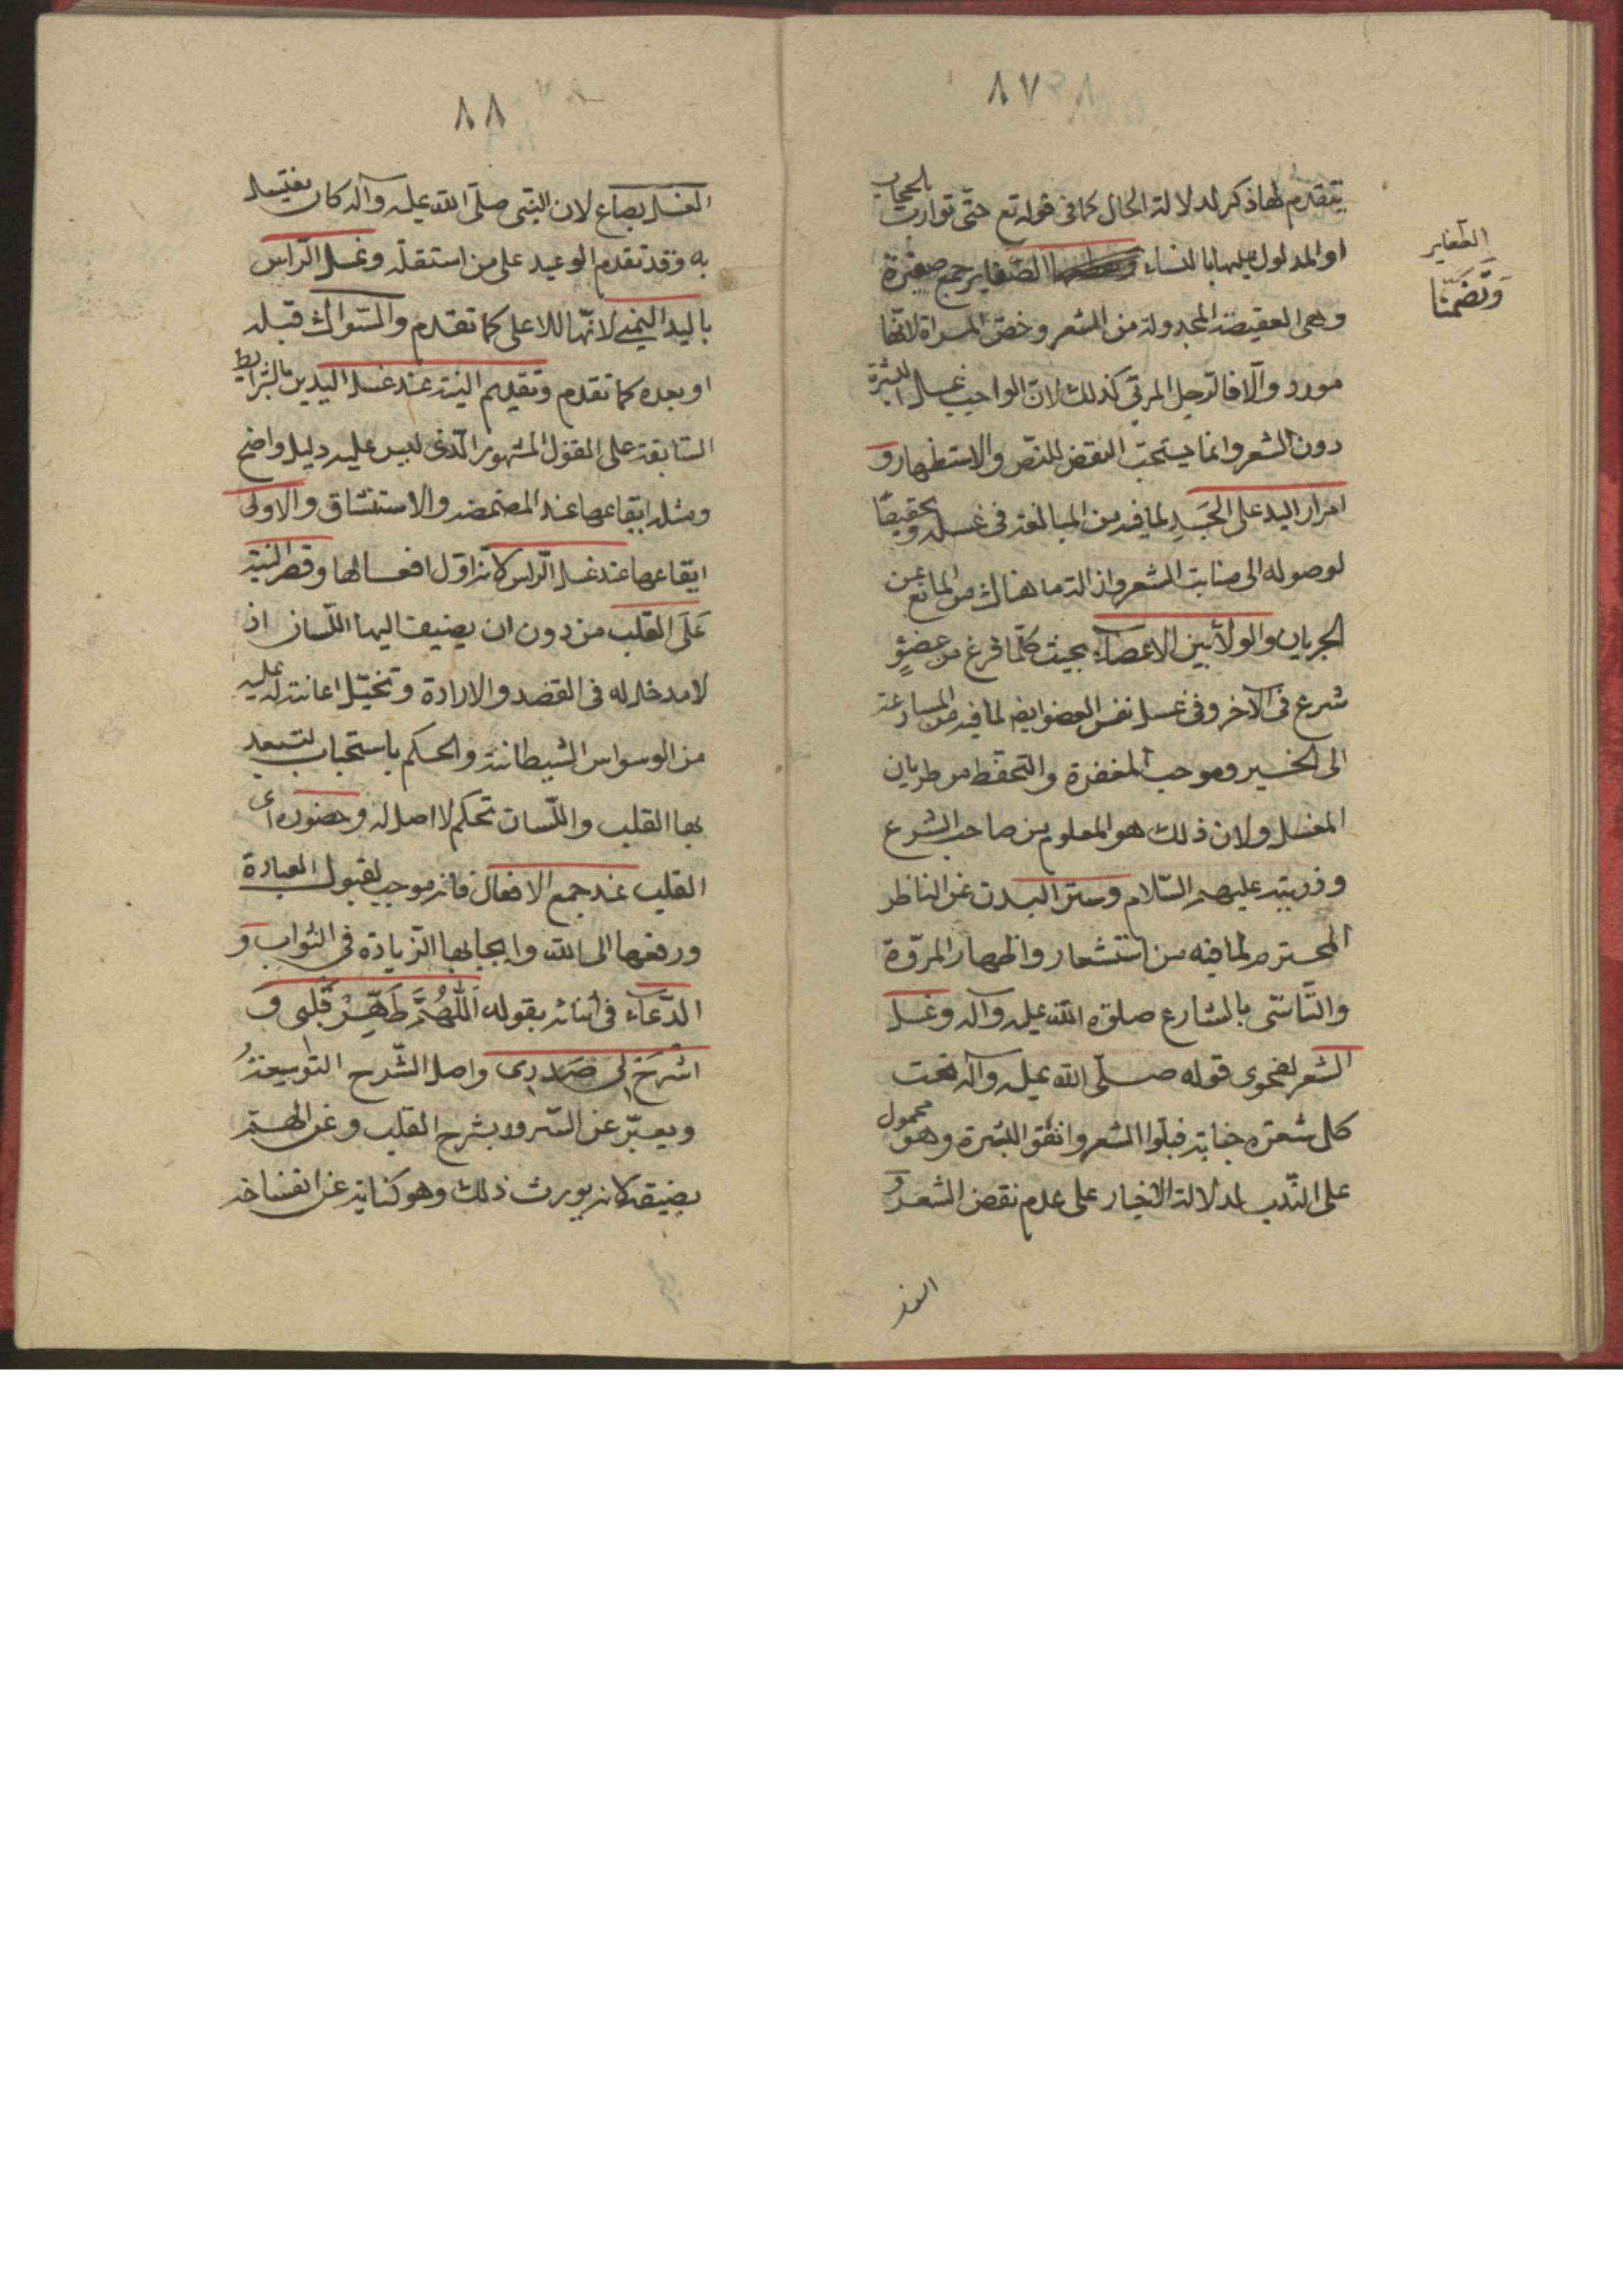 ٨٧
يتقدم لها ذكر لدلالة الحال كما فى قوله تع حتى توارت بالحجاب
او المدلول عليها بالنساء الضفاير جمع ضفيرة
الضفاير
وتضمنا
وهى العقيصة المجدولة من الشعر وخص المراة لانها
مورد والا فالرجل المرتى كذلك لان الواجب غسل البشرة
دون الشعر وانما يستحب النقض للنص والاستظهار و
امرار اليد على الجَسَدِ لما فيه من المبالغة فى غسله وتحقيقًا
لوصوله الى منابت الشعر وازالة ما هناك من المانع عن
الجريان والولآء بين الاعضاء بحيث كلّما فرغ من عضوٍ
شرع فى الآخر وفى غسل نفس العضو ايضا لما فيه من المسارعة
الى الخير وموجب المغفرة والتحفظ من طريان
المفسد ولان ذلك هو المعلوم من صاحب الشرع
وذريته عليهم السّلام وستر البدن عن الناظر
المحترم لما فيه من استشعار واظهار المروّة
والتّاسّى بالشارع صلى الله عليه وآله وغسل
الشعر لفحوى قوله صلّى الله عليه وآله تحت
كل شعرة جنابة فبلّوا الشعر وانقوا البشرة وهو محمول
على الندب لدلالة الاخبار على عدم نقض الشعر و
الغسل
٨٨
الغسل بصاع لان النبى صلّى الله عليه وآله كان يغتسل
به وقد تقدم الوعيد على من استقلّه وغسل الرّاس
باليد اليمنى لانّها للاعلى كما تقدم والسّواك قبله
او بعده كما تقدم وتقديم النية عند غسل اليدين بالشرايط
السّابقة على القول المشهور الّذى ليس عليه دليل واضح
ومثله ايقاعها عند المضمضة والاستنشاق والاولى
ايقاعها عند غسل الرّاس لانه اوّل افعالها وقصر النيّة
عَلَى القلب من دون ان يضيف اليها اللّسان اذ
لا مدخل له فى القصد والارادة وتخيّل اعانته له عليه
من الوسواس الشيطانية والحكم باستحباب لتبعد
بها القلب واللّسان تحكم لا اصل له وحضوره اى
القلب عند جمع الافعال فانه موجب لقبول العبادة
ورفعها الى الله وايجابها الزّيادة فى الثواب و
الدّعآء فى اثنائه بقوله اَللّٰهُمَّ طَهِّرْ قَلْبى وَ
اشْرَحْ لى صَدْرِى واصل الشّرح التّوسعةُ
ويعبّر عن السّرور بشرح القلب وعن الهمّ
بضيقه لانه يورث ذلك وهو كناية عن انفساخه